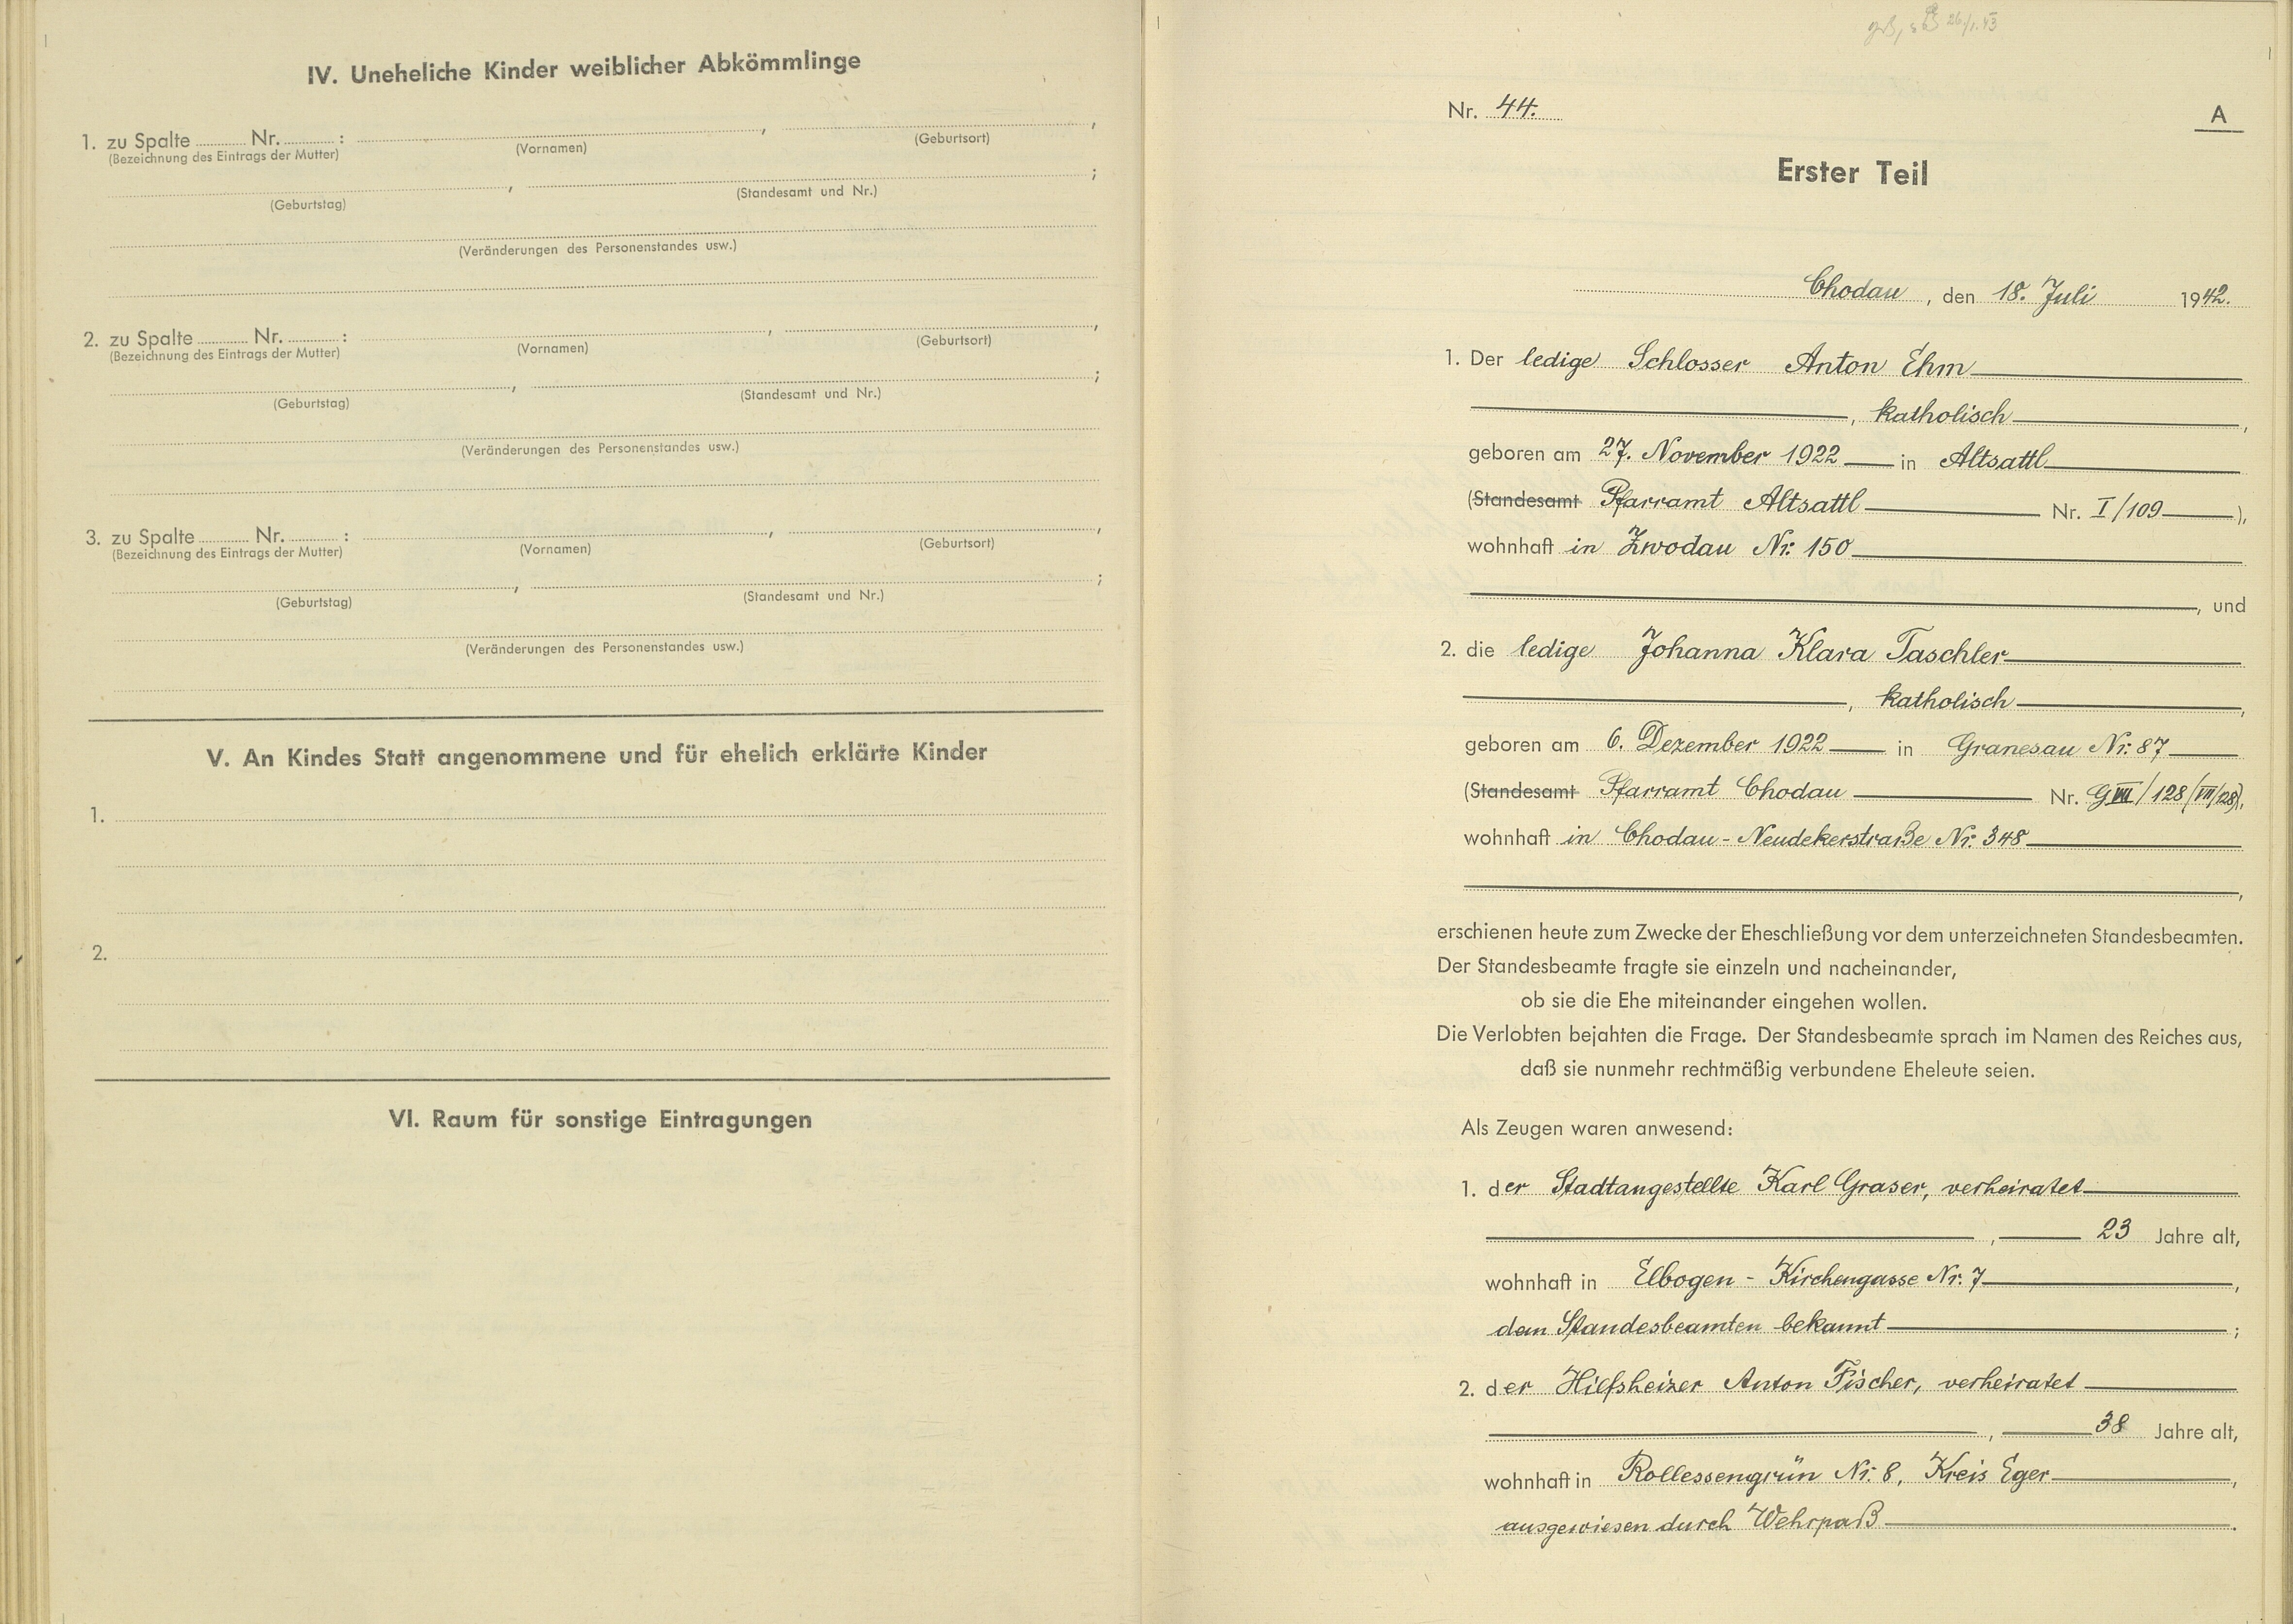 IV. Uneheliche Kinder weiblicher Abkömmlinge
1. zu Spalte ........ Nr. ........ : ........ , ........ ,
(Bezeichnung des Eintrags der Mutter) (Vornamen) (Geburtsort)
........ , ........ ;
(Geburtstag) (Standesamt und Nr.)
(Veränderungen des Personenstandes usw.)
2. zu Spalte ........ Nr. ........ : ........ , ........ ,
(Bezeichnung des Eintrags der Mutter) (Vornamen) (Geburtsort)
........ , ........ ;
(Geburtstag) (Standesamt und Nr.)
(Veränderungen des Personenstandes usw.)
3. zu Spalte ........ Nr. ........ : ........ , ........ ,
(Bezeichnung des Eintrags der Mutter) (Vornamen) (Geburtsort)
........ , ........ ;
(Geburtstag) (Standesamt und Nr.)
(Veränderungen des Personenstandes usw.)
V. An Kindes Statt angenommene und für ehelich erklärte Kinder
1.
2.
VI. Raum für sonstige Eintragungen
Nr. 44.
A
Erster Teil
Chodau, den 18. Juli 1942.
1. Der ledige Schlosser Anton Ehm
, katholisch ,
geboren am 27. November 1922 in Altsattl
(Standesamt Pfarramt Altsattl Nr. I/109 ),
wohnhaft in Zwodau Nr. 150
, und
2. die ledige Johanna Klara Taschler
, katholisch ,
geboren am 6. Dezember 1922 in Granesau Nr. 87
(Standesamt Pfarramt Chodau Nr. G VII/128 (VII/128),
wohnhaft in Chodau - Neudekerstraße Nr. 348
,
erschienen heute zum Zwecke der Eheschließung vor dem unterzeichneten Standesbeamten.
Der Standesbeamte fragte sie einzeln und nacheinander,
ob sie die Ehe miteinander eingehen wollen.
Die Verlobten bejahten die Frage. Der Standesbeamte sprach im Namen des Reiches aus,
daß sie nunmehr rechtmäßig verbundene Eheleute seien.
Als Zeugen waren anwesend:
1. der Stadtangestellte Karl Graser, verheiratet
, 23 Jahre alt,
wohnhaft in Elbogen - Kirchengasse Nr. 7 ,
dem Standesbeamten bekannt ;
2. der Hilfsheizer Anton Fischer, verheiratet
, 38 Jahre alt,
wohnhaft in Rollessengrün Nr. 8, Kreis Eger ,
ausgewiesen durch Wehrpaß .